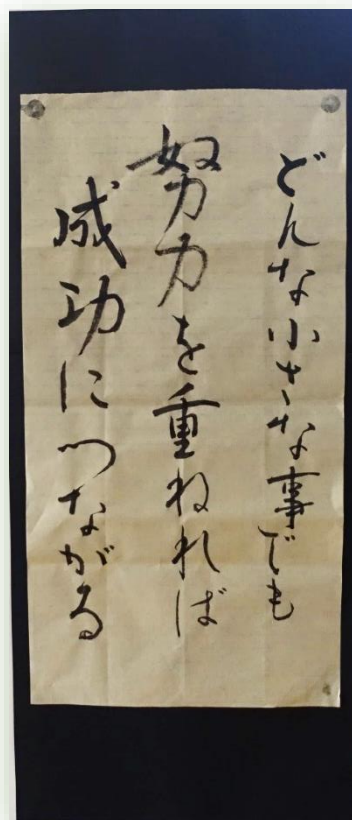 どんな小さな事でも
努力を重ねれば
成功につながる